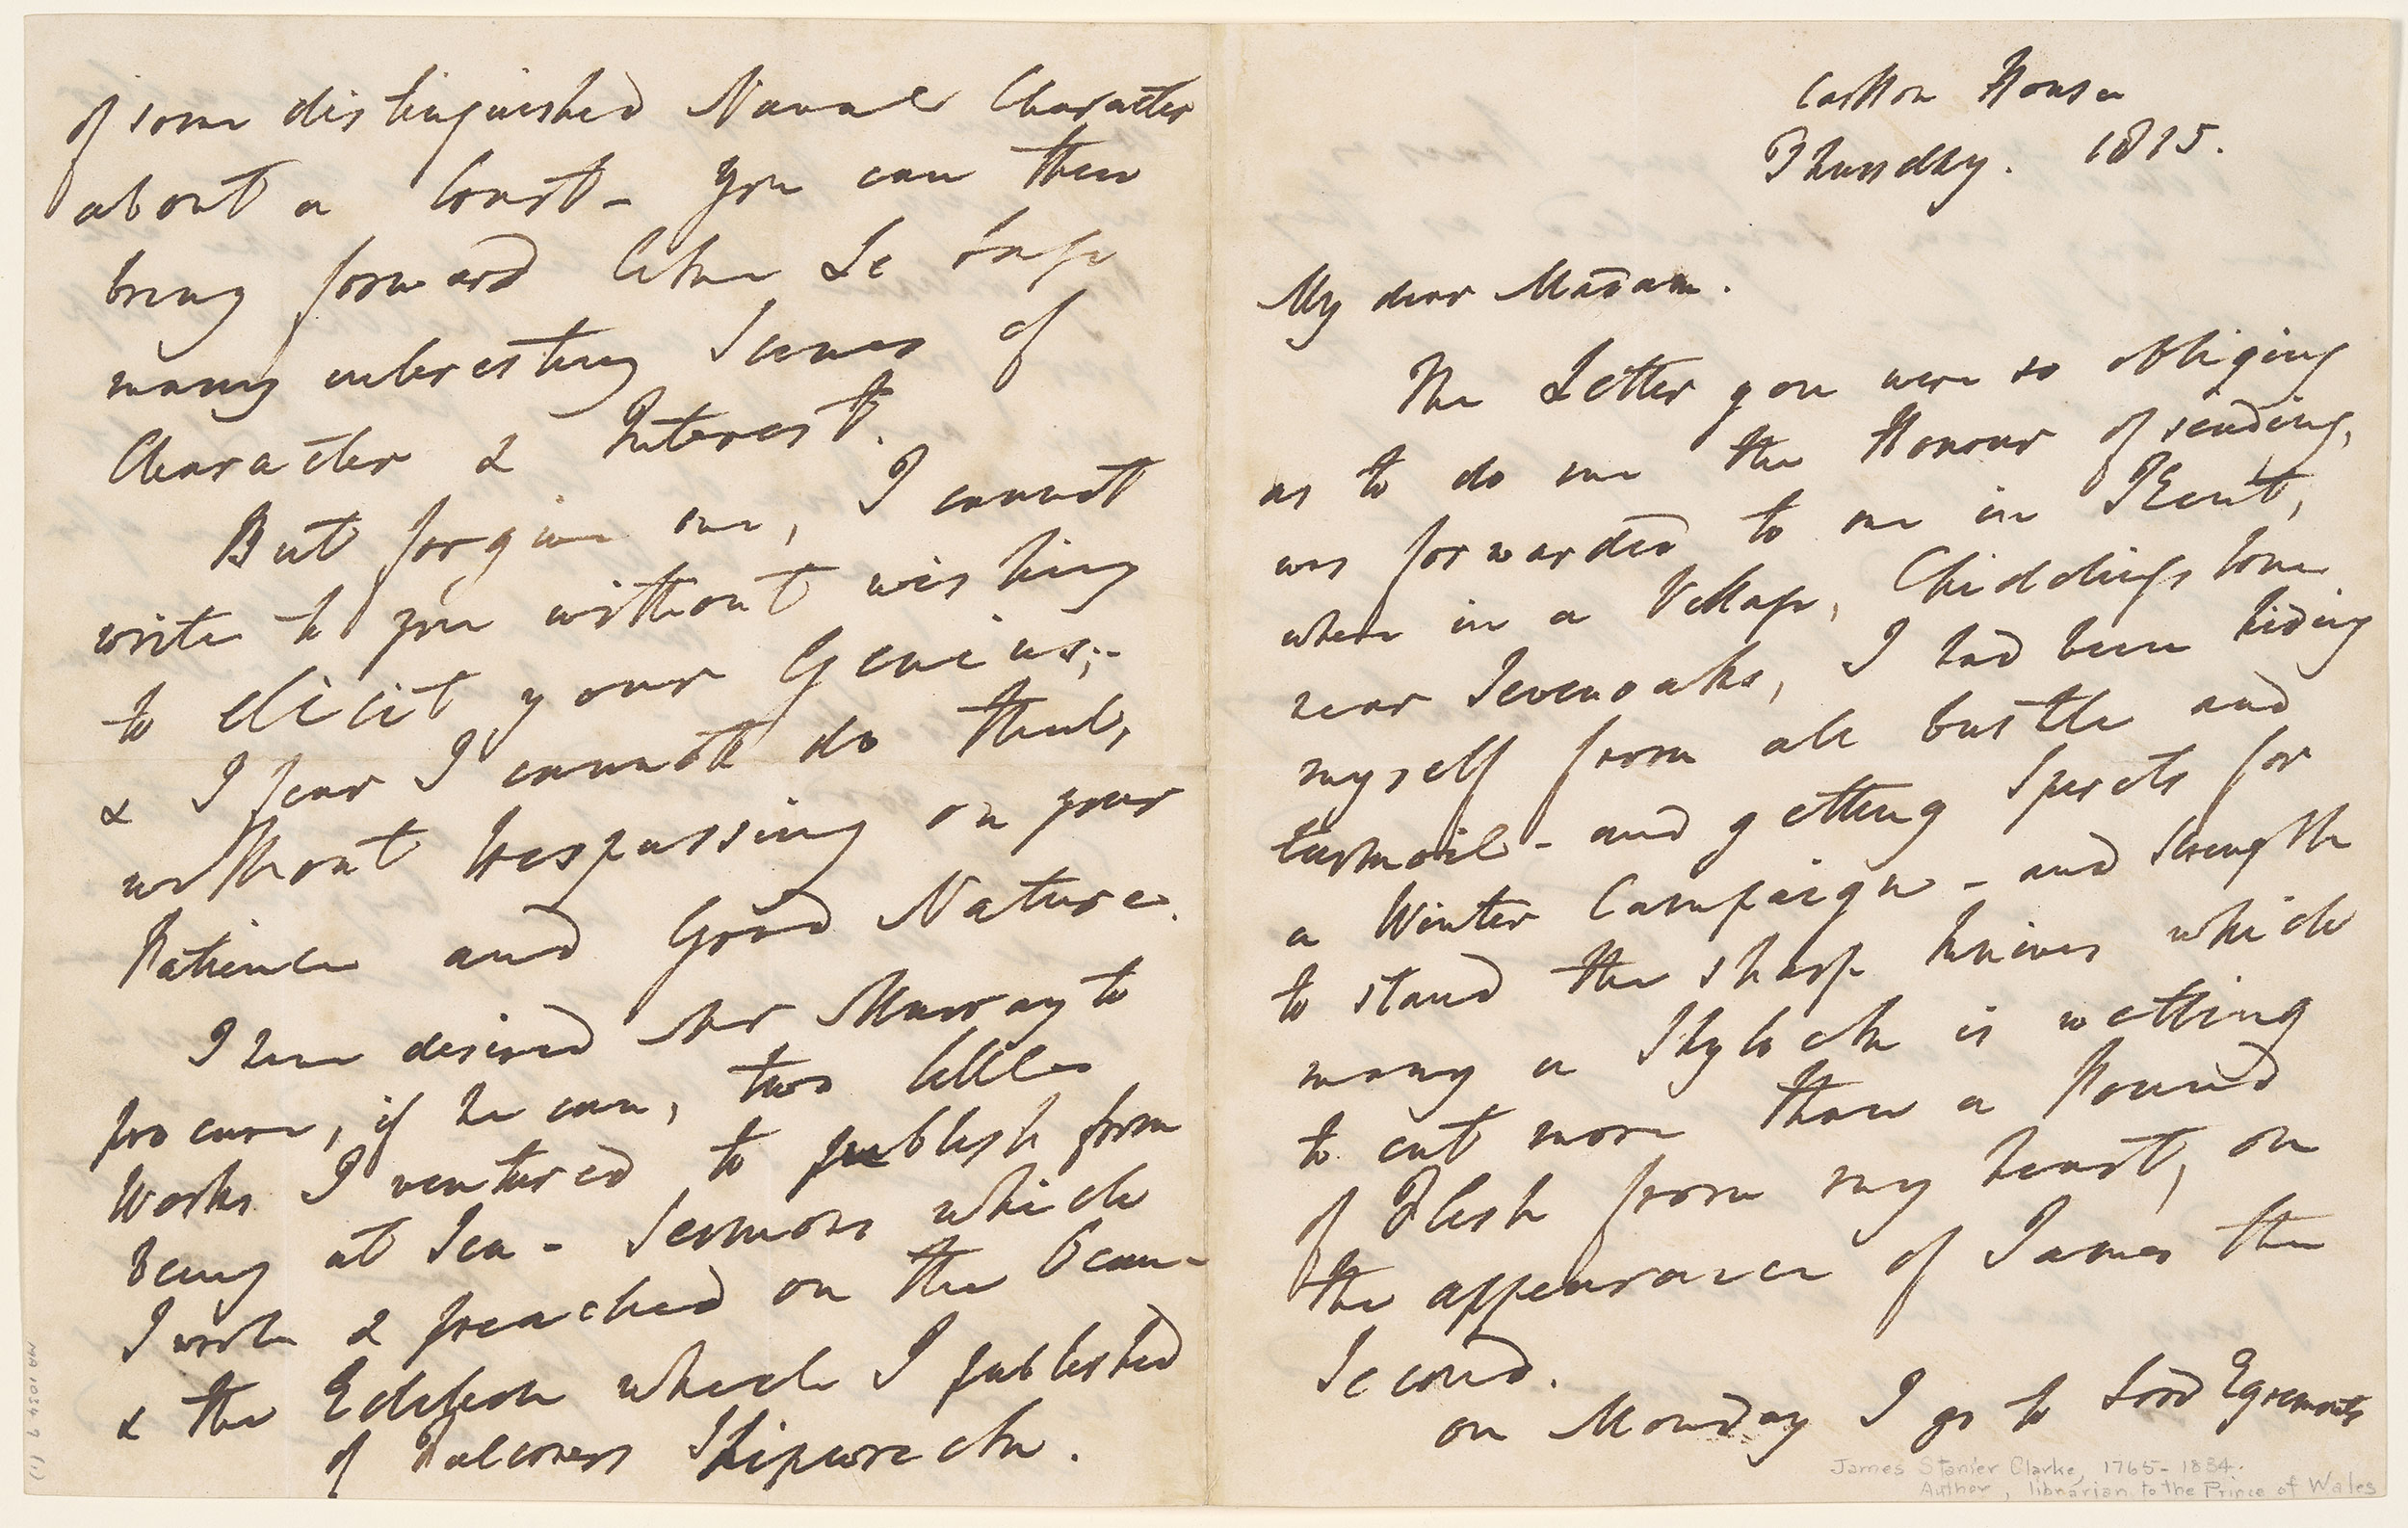 Carlton House
Thursday. 1815.
My dear Madam.
The Letter you were so obliging
as to do me the Honour of sending,
was forwarded to me in Kent,
where in a Village, Chiddingstone
near Sevenoaks, I had been hiding
myself from all bustle and
turmoil - and getting Spirits for
a Winter Campaign - and Strength
to stand the sharp knives which
many a Shylock is wetting
to cut more than a Pound
of Flesh from my heart, on
the appearance of James the
Second.
on Monday I go to Lord Egremonts
James Stanier Clarke, 1765-1834.
Author, librarian to the Prince of Wales
of some distinguished Naval Character
about a Court - you can then
bring forward like Le Sage
many interesting Scenes of
Character & Interest.
But forgive me, I cannot
write to you without wishing
to elicit your Genius;-
& I fear I cannot do that,
without trespassing on your
Patience and Good Nature.
I have desired Mr Murray to
procure, if he can, two little
Works I ventured to publish from
being at Sea - Sermons which
I wrote & preached on the Ocean -
& the Edition which I published
of Falconers Shipwreck.
MA 1034.7 (1)